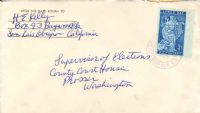 AFTER FIVE DAYS RETURN TO
H E Kelly
Box 93
San Luis Obispo California
Supervisor of Elections
County Court House
Prosser
Washington